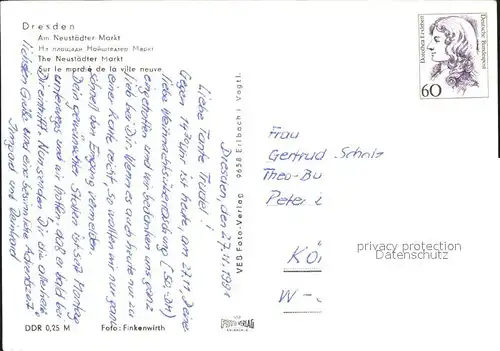 Dresden
Am Neustädter Markt
На площади Нойштедтер Маркт
The Neustädter Markt
Sur le marché de la ville neuve
Dresden, den 27.11.1991
Liebe Tante Trudel!
Gegen 14 Uhr ist heute, am 27.11., Deine
liebe Weihnachtsüberraschung (50,-DM)
eingetroffen, und wir bedanken uns ganz
lieb bei Dir. Wenn es auch heute nur zu
einer Karte reicht, so wollen wir nur ganz
schnell den Eingang vermelden.
Dein gewünschter Stollen ist seit Montag
unterwegs und wir hoffen, daß er bald bei
Dir eintrifft. Nun senden Dir die allerherz-
lichsten Grüße und eine besinnliche Adventszeit
Irmgard und Bernhard
DDR 0,25 M
Foto: Finkenwirth
VEB Foto-Verlag 9658 Erlbach i. Vogtl.
FOTO VERLAG
Dorothea Erxleben
Deutsche Bundespost
60
Frau
Gertrud Scholz
Theo-Bu
Peter
Kö
W-
privacy protection
Datenschutz